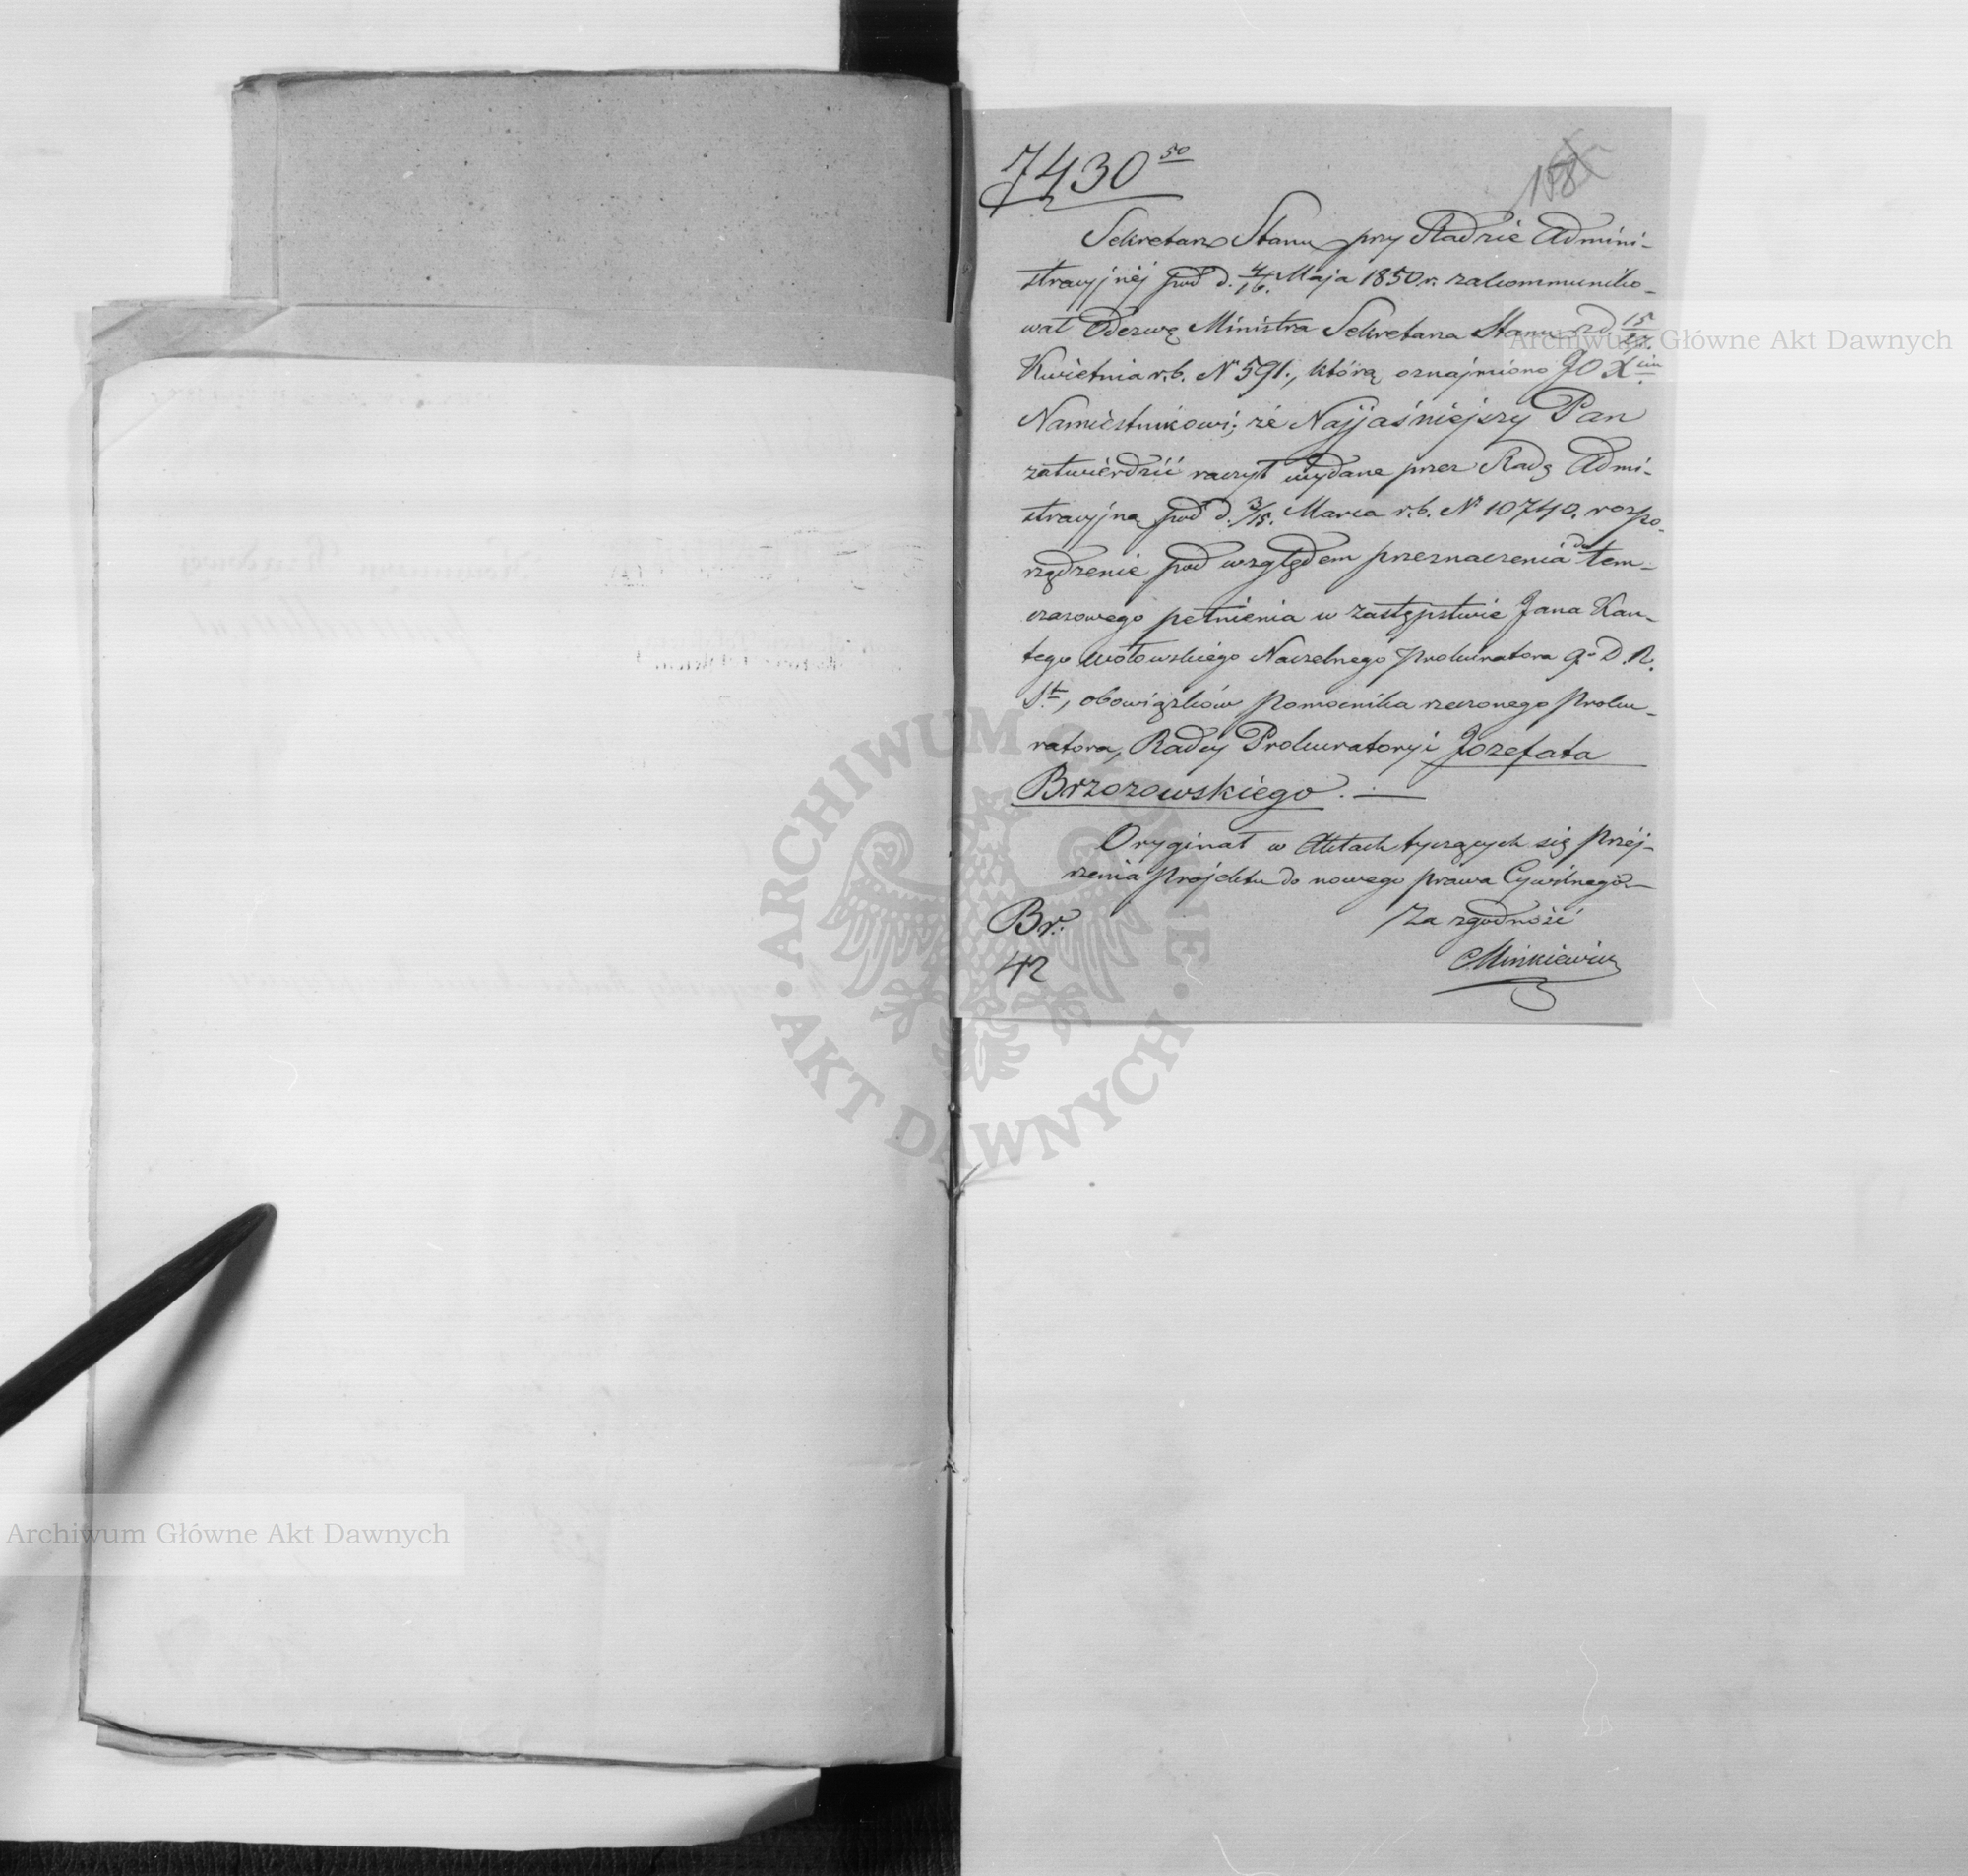 7430 50
158
Sekretarz Stanu przy Radzie Admini-
stracyjnéj pod d. 4/16. Maja 1850 r. zakommuniko-
wał Odezwę Ministra Sekretarza Stanu z d. 15/27.
Kwietnia r.b. Nr 591., którą oznajmiono JO Xciu
Namiestnikowi; że Najjaśniejszy Pan
zatwierdzić raczył wydane przez Radę Admi-
stracyjną pod d. 3/15. Marca r.b. Nr 10740. rozpo-
rządzenie pod względem przeznaczenia do tem-
czasowego pełnienia w zastępstwie Jana Kan-
tego Wołowskiego Naczelnego Prokuratora 9o D. R.
St., obowiązków Pomocnika rzeczonego Proku-
ratora, Radcy Prokuratoryi Jozefata
Brzozowskiego. —
Oryginał w Aktach tyczących się Przéj-
rzenia Projektu do nowego prawa Cywilnego —
Br:
Za zgodność
42
Minkiewicz
Archiwum Główne Akt Dawnych
Archiwum Główne Akt Dawnych
ARCHIWUM GŁÓWNE
AKT DAWNYCH